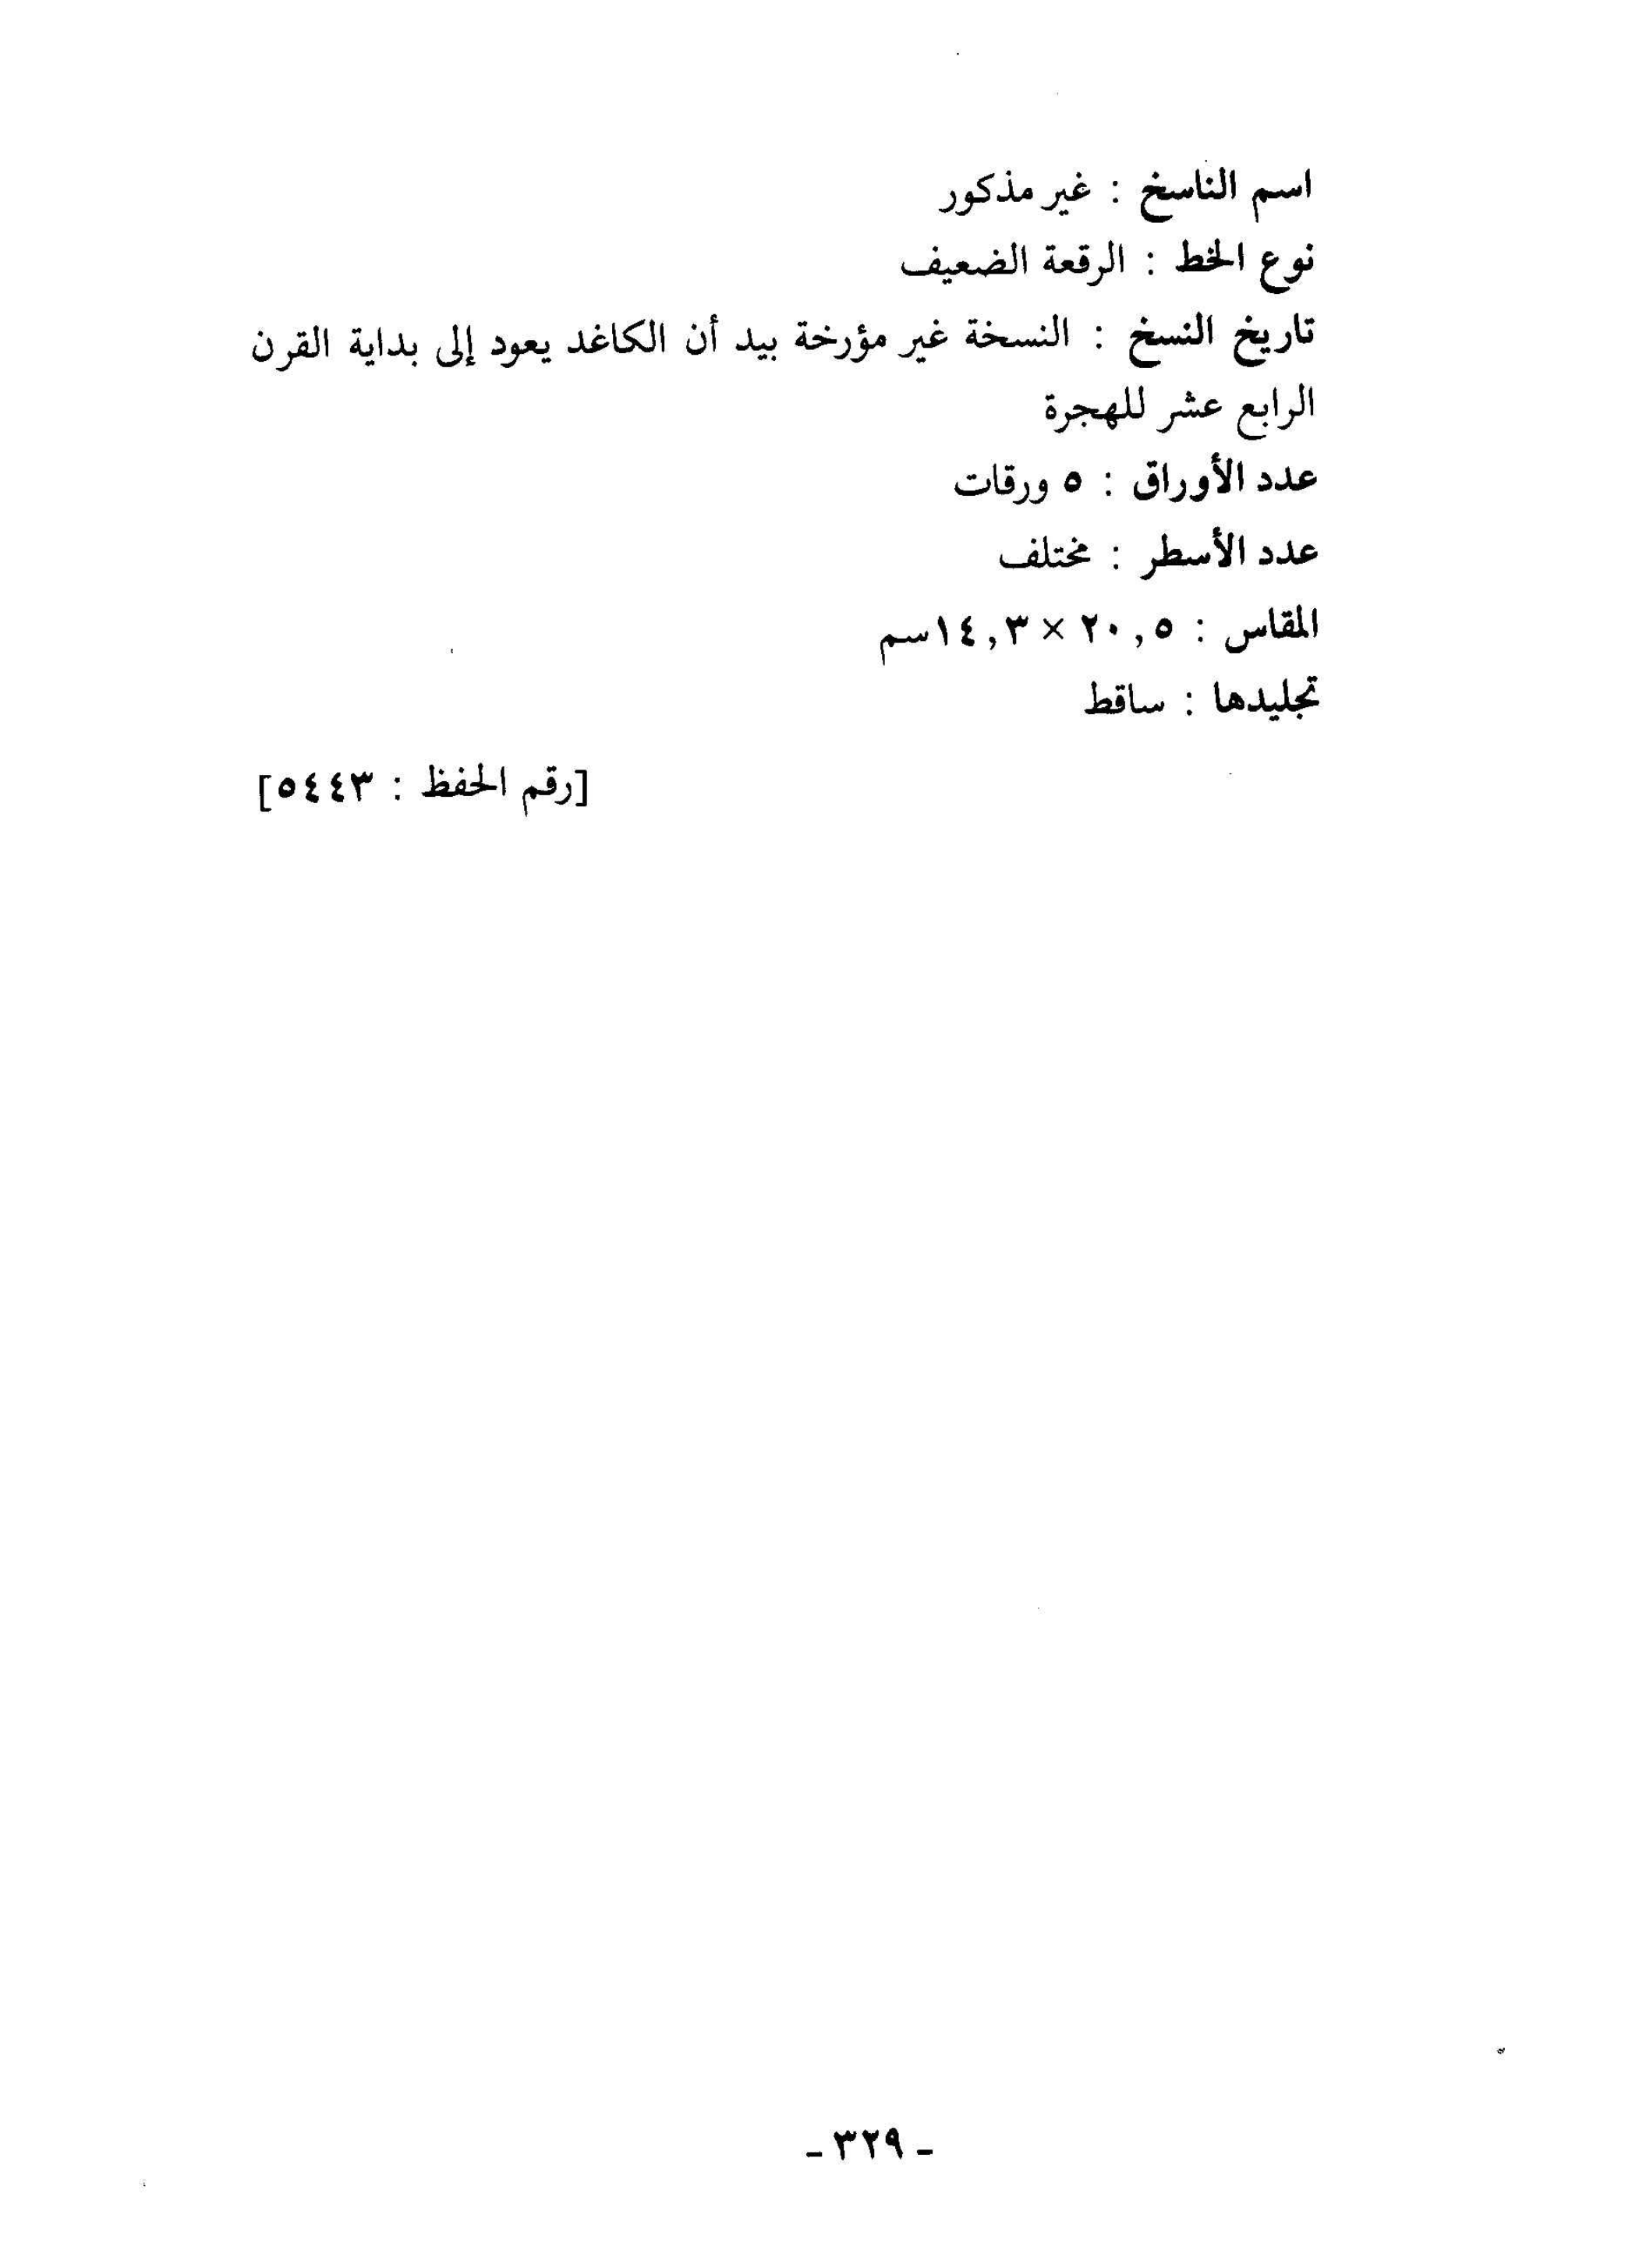 اسم الناسخ : غير مذكور
نوع الخط : الرقعة الضعيف
تاريخ النسخ : النسخة غير مؤرخة بيد أن الكاغد يعود إلى بداية القرن
الرابع عشر للهجرة
عدد الأوراق : ٥ ورقات
عدد الأسطر : مختلف
المقاس : ٢٠,٥ × ١٤,٣سم
تجليدها : ساقط
[رقم الحفظ : ٥٤٤٣]
- ٣٢٩ -